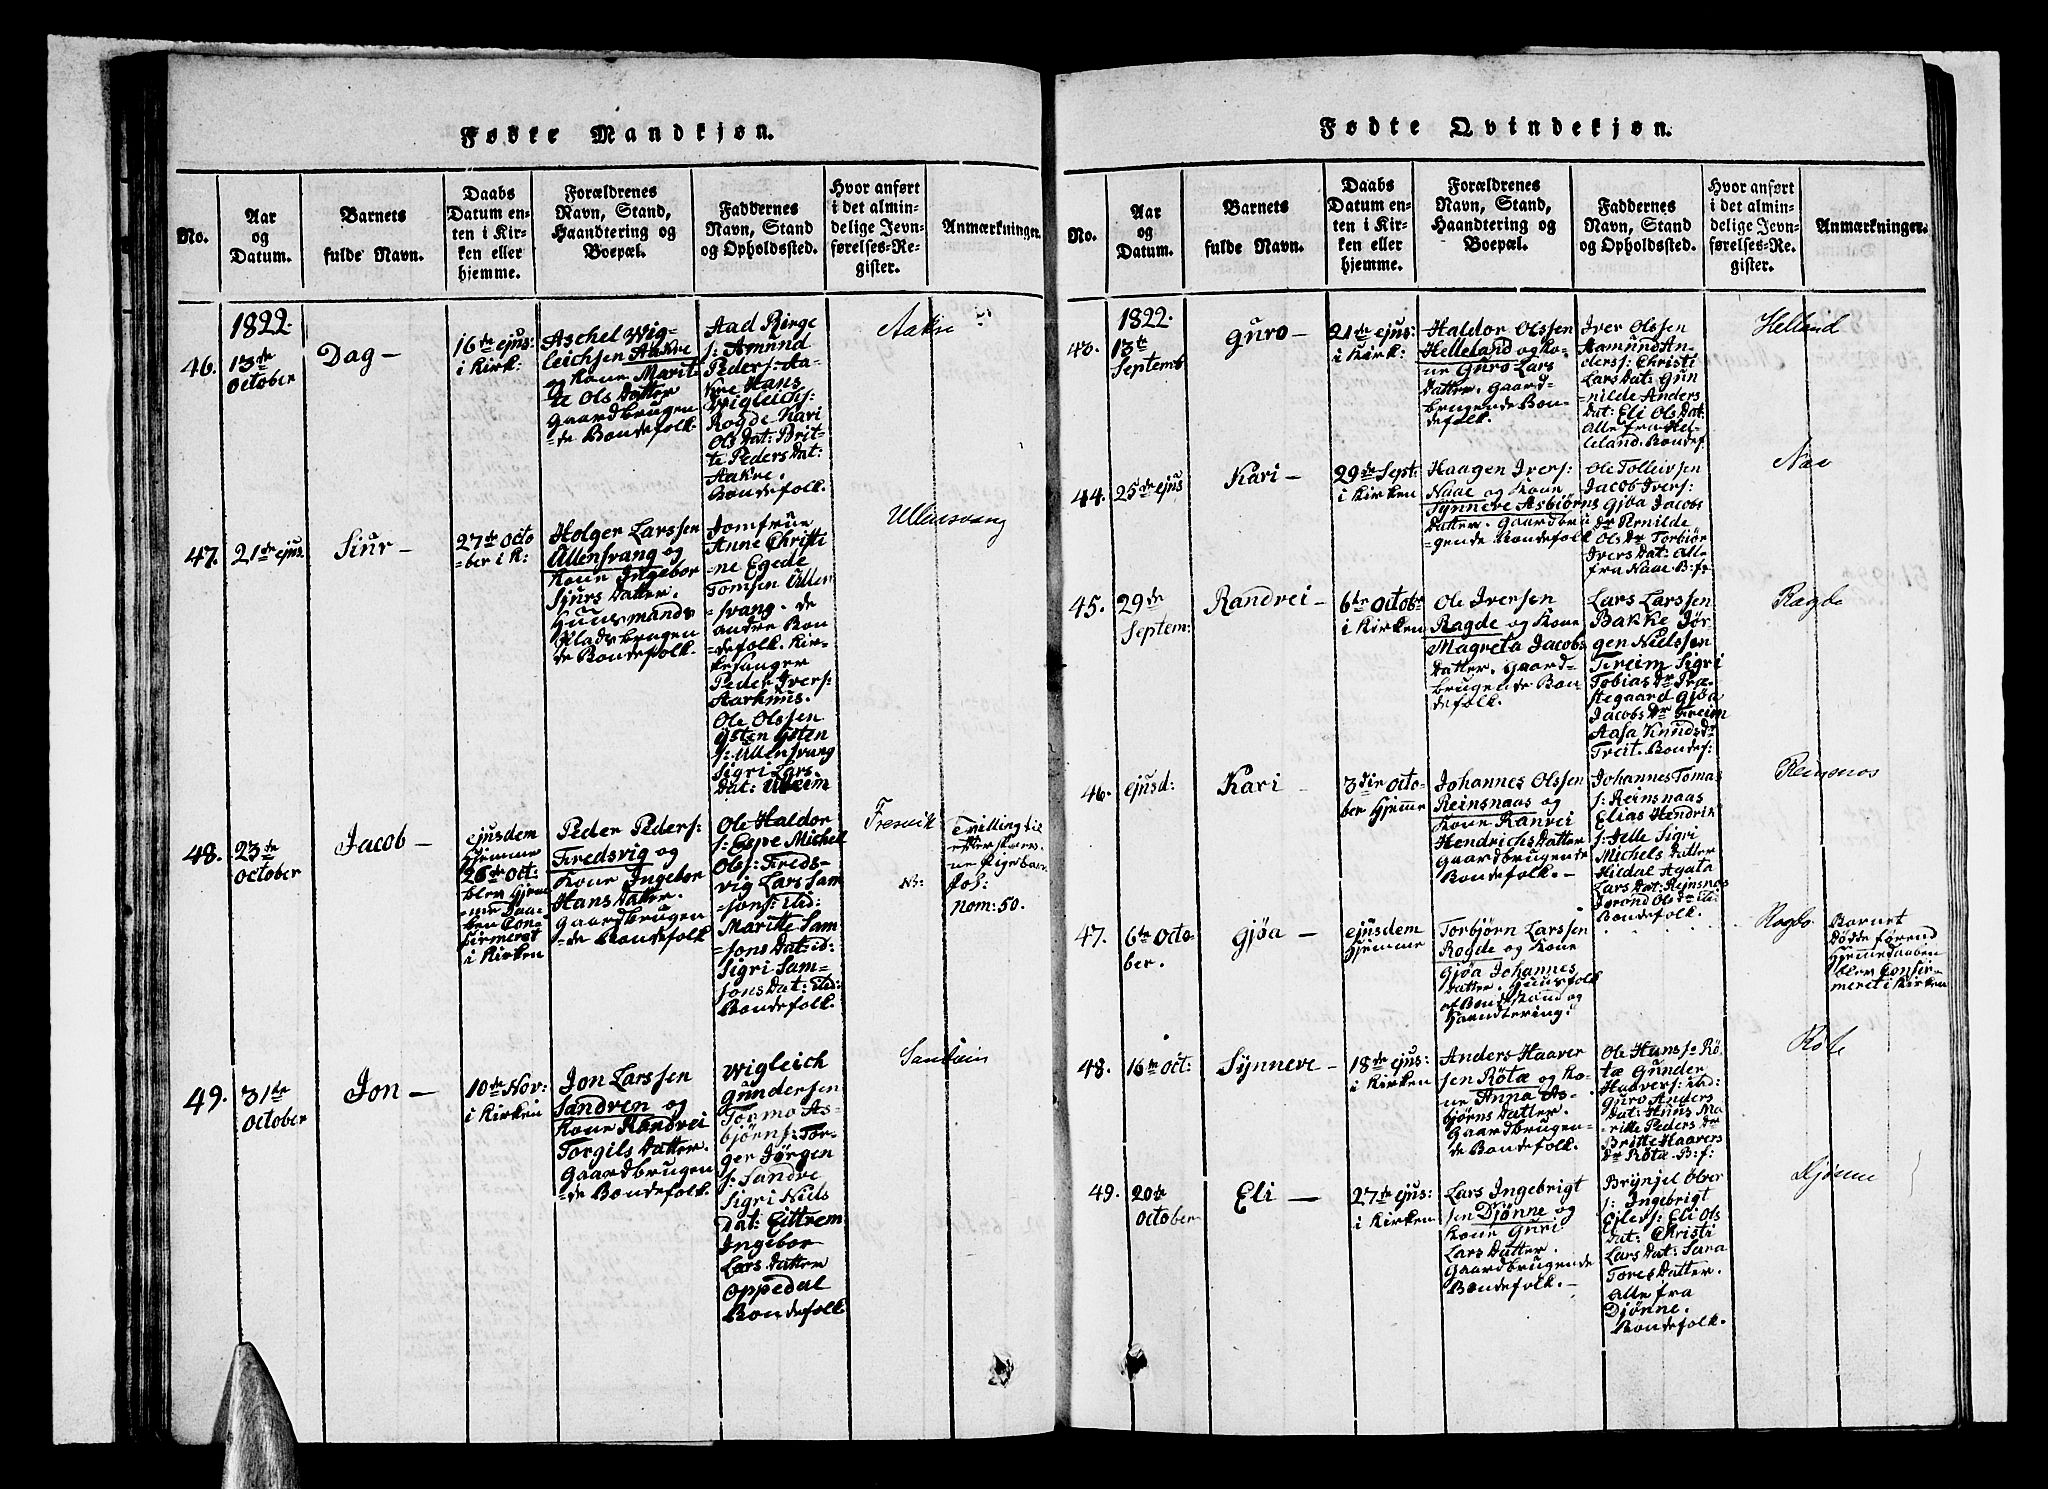 Fødte Mandkjøn.
No.
Aar
og
Datum.
Barnets
fulde Navn.
Daabs
Datum en-
ten i Kir-
ken eller
hjemme.
Forældrenes
Navn, Stand,
Haandtering og
Boepæl.
Faddernes
Navn, Stand
og Opholdssted.
Hvor anført
i det almin-
delige Jevn-
førelses-Re-
gister.
Anmærkninger.
1822.
46.
13de
October
Dag —
16de ejus:
i Kirk:
Aschel Wig-
leichsen Aakre
og Kone Marit-
te Ols Datter
Gaardbrugen
=de Bondefolk.
Aad Ringe
s: Amund
Peders: Aa-
kre Hans
Wigleichs:
Rogde Kari
Ols Dat: Brit-
te Peders Dat:
Aakre.
Bondefolk.
Aakre
47.
21de ejus.
Siur —
27de Octo
=ber i K:
Holger Larssen
Ullensvang og
Kone Ingebor
Sjurs Datter.
Huusmands
Pladsbrugen
de Bondefolk.
Jomfrue
Anne Christi
=ne Egede
Tomsen Ullen
=svang. de
andre Bon
=defolk. Kir-
kesanger
Peder Ivers:
Aarhuus.
Ole Olssen
Østen Østen
s: Ullensvang
Sigri Lars
Dat: Ulleim
Ullensvang
48.
23de
October
Jacob —
ejusdem
Hjemme
26de Oct:
blev Hjem
=me Daa-
ben Con-
firmeret
i Kirken
Peder Peders:
Fredsvig og
Kone Ingebor
Hans Datter.
Gaardbrugen
=de Bondefolk
Ole Haldor
s: Espe Michel
Ols: Freds-
vig Lars Sam
=sons: ibid:
Maritte Sam
=sons Dat: ib:
Sigri Sam=
sons Dat: ibid:
Bondefolk.
Fresvik
Tvilling til
efterskrev-
ne Pigebarn
Nom: 50.
49.
31te
October
Jon —
10de Nov:
i Kirken
Jon Larssen
Sandven og
Kone Randvei
Torgils Datter.
Gaardbrugen
=de Bondefolk.
Wigleich
Gundersen
Tormo As-
bjørns: Tor-
ger Jørgen
s: Sandve
Sigri Niels
Dat: Eittrem
Ingebor
Lars Datter
Oppedal
Bondefolk
Sandvin
Fødte Qvindekjøn.
No.
Aar
og
Datum.
Barnets
fulde Navn.
Daabs
Datum en-
ten i Kir-
ken eller
hjemme.
Forældrenes
Navn, Stand,
Haandtering og
Boepæl.
Faddernes
Navn, Stand
og Opholdssted.
Hvor anført
i det almin-
delige Jevn-
førelses-Re-
gister.
Anmærkninger.
1822.
43.
13de
Septemb
Guro —
21de ejus:
i Kirk:
Haldor Olssen
Helleland og Ko-
ne Guro Lars
Datter. Gaard-
brugende Bon-
defolk.
Iver Olssen
Aamund An-
derss: Christi
Lars Dat: Gun
=nilde Anders
Dat: Eli Ols Dat:
Alle fra Hel-
leland. Bondef.
Helland
44.
25de ejus
Kari —
29de Sept:
i Kirken
Haagen Ivers:
Naae og Kone
Synneve Asbiørns
Datter. Gaardbru
=gende Bondefolk
Ole Tolleivsen
Jacob Ivers:
Gjøa Jacobs
Dr Pernilde
Ols Dr Torbiør
Ivers Dat: Alle
fra Naae B: f:
Naae
45.
29de
Septem:
Randvei —
6te Octobr
i Kirken
Ole Iversen
Ragde og Kone
Magreta Jacobs
Datter. Gaard-
brugende Bon
defolk.
Lars Larssen
Bakke Jør
gen Nielssen
Freim Sigri
Tobias Dr Præ-
stegaard Gjøa
Jacobs Dr Freim
Aasa Knuds Dr
Freit. Bondef:
Ragde
46.
ejusd:
Kari —
3die Octo-
ber Hjemme
Johannes Olssen
Reinsnaas og
Kone Ranvei
Hendrichs Datter
Gaardbrugende
Bondefolk. —
Johannes Tomas
s: Reinsnaas
Elias Hendrik
s: Jelle Sigri
Michels Datter
Hildal Agata
Lars Dat: Reinsnos
Jorond Ols Dr ibi:
Bondefolk.
Reinsnos
47.
6te Octo-
ber.
Gjøa —
ejusdem
Hjemme
Torbjørn Larssen
Rogde og Kone
Gjøa Johannes
Datter. Huusfolk
af Bondestand og
Haandtering.
Ragde
Barnet
Døde førend
Hjemedaaben
blev Confir-
meret i Kirken
48.
16de Oct:
Synneve —
18de ejus:
i Kirken
Anders Haaver
sen Røtæ og Ko-
ne Anna As-
bjørns Datter.
Gaardbrugen-
de Bondefolk.
Ole Hanss: Rø-
tæ Gunder
Haavers: ibid:
Guro Anders
Dat: Huus Ma-
ritte Peders Dr
Britte Haavers
Dr Røtæ. B: f:
Røte
49.
20de
October
Eli —
27de ejus:
i Kirken
Lars Ingebrigt
sen Djønne og
Kone Guri
Lars Datter.
Gaardbrugende
Bondefolk. —
Brynjel Olver
s: Ingebrigt
Ejlers: Eli Ols
Dat: Christi
Lars Dat: Sara
Tores Datter.
Alle fra
Djønne.
Bondefolk.
Djønne